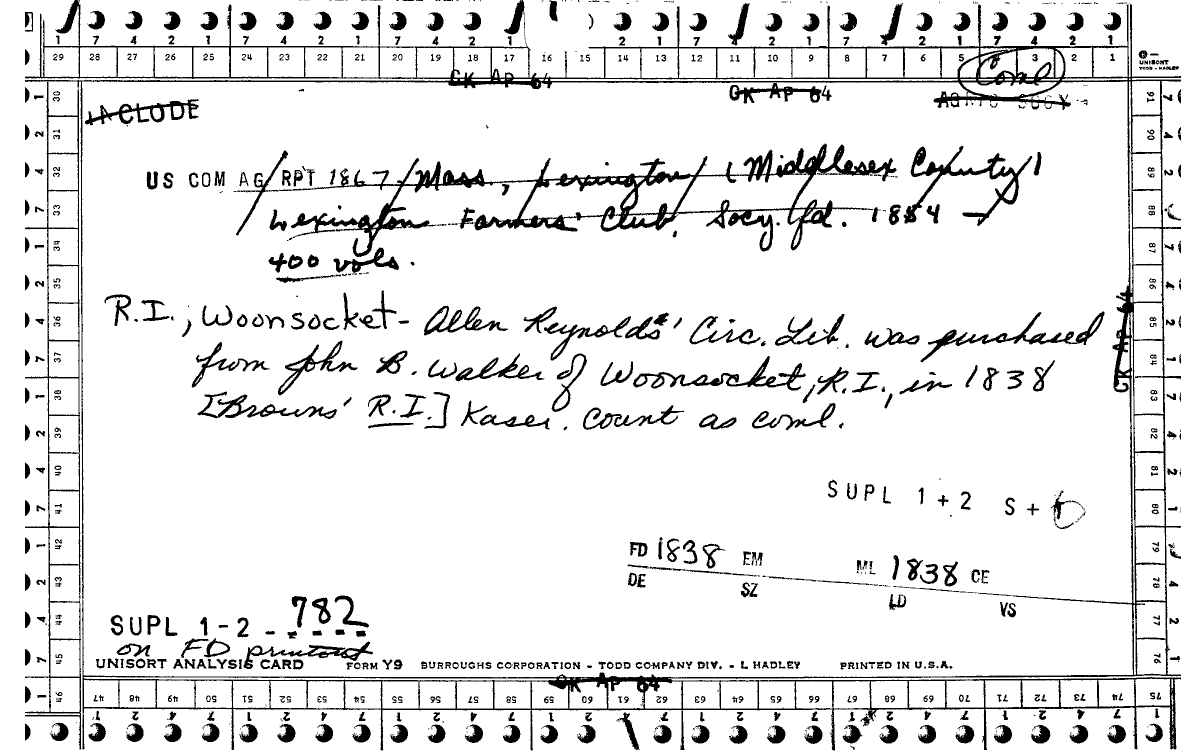 7 4 2 1 7 4 2 1 7 4 2 1 2 1 7 4 2 1 7 4 2 1 7 4 2 1
29 28 27 26 25 24 23 22 21 20 19 18 17 16 15 14 13 12 11 10 9 8 7 6 5 4 3 2 1
UNISORT
TODD - HADLEY
Coml
CK AP 64
CK AP 64
INCLODE
US COM AG/RPT 1867/Mass., Lexington/ (Middlesex County)
Lexington Farmers' Club, Socy. fd. 1854 →
400 vols.
R.I., Woonsocket - Allen Reynolds' Circ. Lib. was purchased
from John B. Walker of Woonsocket, R.I., in 1838
[Browns' R.I.] Kaser. Count as coml.
CK AP 64
SUPL 1+2 S+
FD 1838 EM ML 1838 CE
DE SZ LD VS
SUPL 1-2 - 782
on FD printout
UNISORT ANALYSIS CARD FORM Y9 BURROUGHS CORPORATION - TODD COMPANY DIV. - L HADLEY PRINTED IN U.S.A.
CK AP 64
30 31 32 33 34 35 36 37 38 39 40 41 42 43 44 45 46
47 48 49 50 51 52 53 54 55 56 57 58 59 60 61 62 63 64 65 66 67 68 69 70 71 72 73 74 75
91 90 89 88 87 86 85 84 83 82 81 80 79 78 77 76